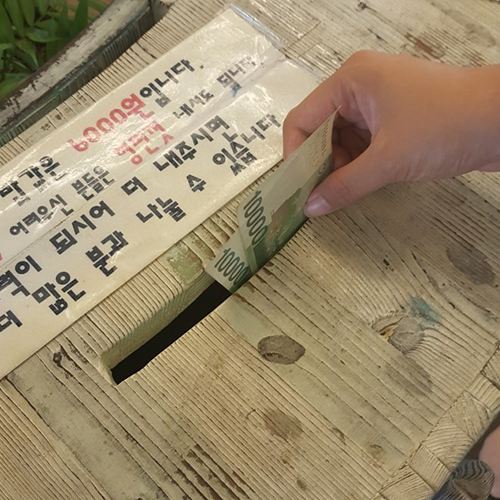 밥값은 6000원입니다.
어려우신 분들은 형편껏 내셔도 됩니다
력이 되시어 더 내주시면
더 많은 분과 나눌 수 있습니다
10000
10000